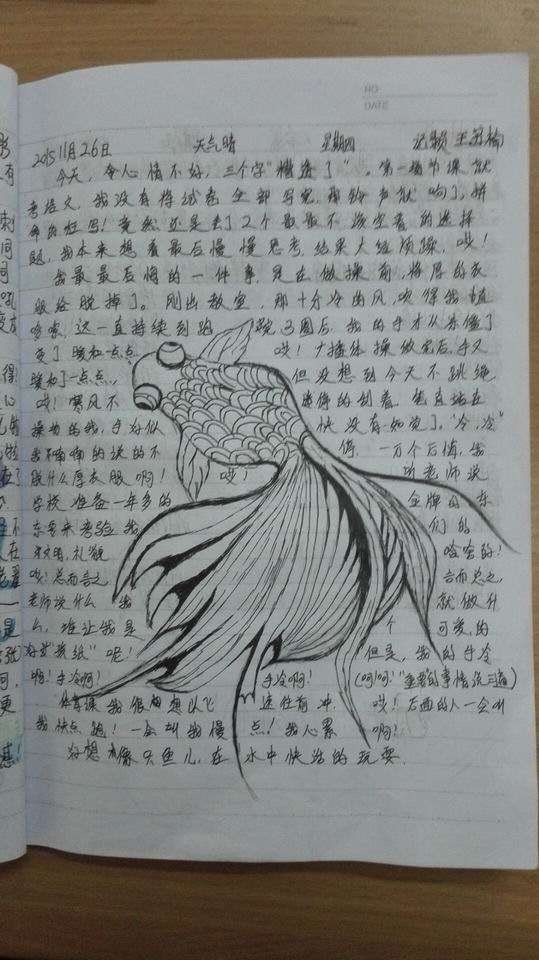 NO
DATE
2015 11月26日 天气晴 星期四 记录 王
今天,令人情不好,三个字"糟透了"。第一场节课就
考语文,我没有将试卷全部写完,那铃声就响了,拼
命的狂写!竟然还是丢了2个最最不该空着的选择
题,我本来想着最后慢慢思考,结果大经烦躁,哎!
我最最后悔的一件事,是在做操前,将厚的衣
服给脱掉了。刚出教室,那十分冷的风,吹得我直
哆嗦,这一直持续到跑 院3圈后,我的手才从冻僵了
变了暖和一点点 哎!广播体操做完后,手又
暖和了一点点, 但没想到今天不跳绳
哎!寒风不 的刮着,
操场的我,手好似 快没有知觉了。"冷,冷"
我不喃喃的说的不 值,一万个后悔,我
脱什么厚衣服啊! 哎! 听老师说
学校准备一年多的 金牌的东
东要来考验我 们的
文明,礼貌 啥啥的!
哎!总而言之 言而总之
老师说什么 我 就做什
么,谁让我是 个 可爱的
好学 纸"呢! 但是,我的手冷
啊!手冷啊! 手冷啊! (呵呵!"重要的事情说三遍)
体育课我很想想以飞 速往前冲, 哎!后面的人一会叫
我快点跑!一会叫我慢 点!我心累 啊!
好想像只鱼儿,在 水中快活的玩耍.